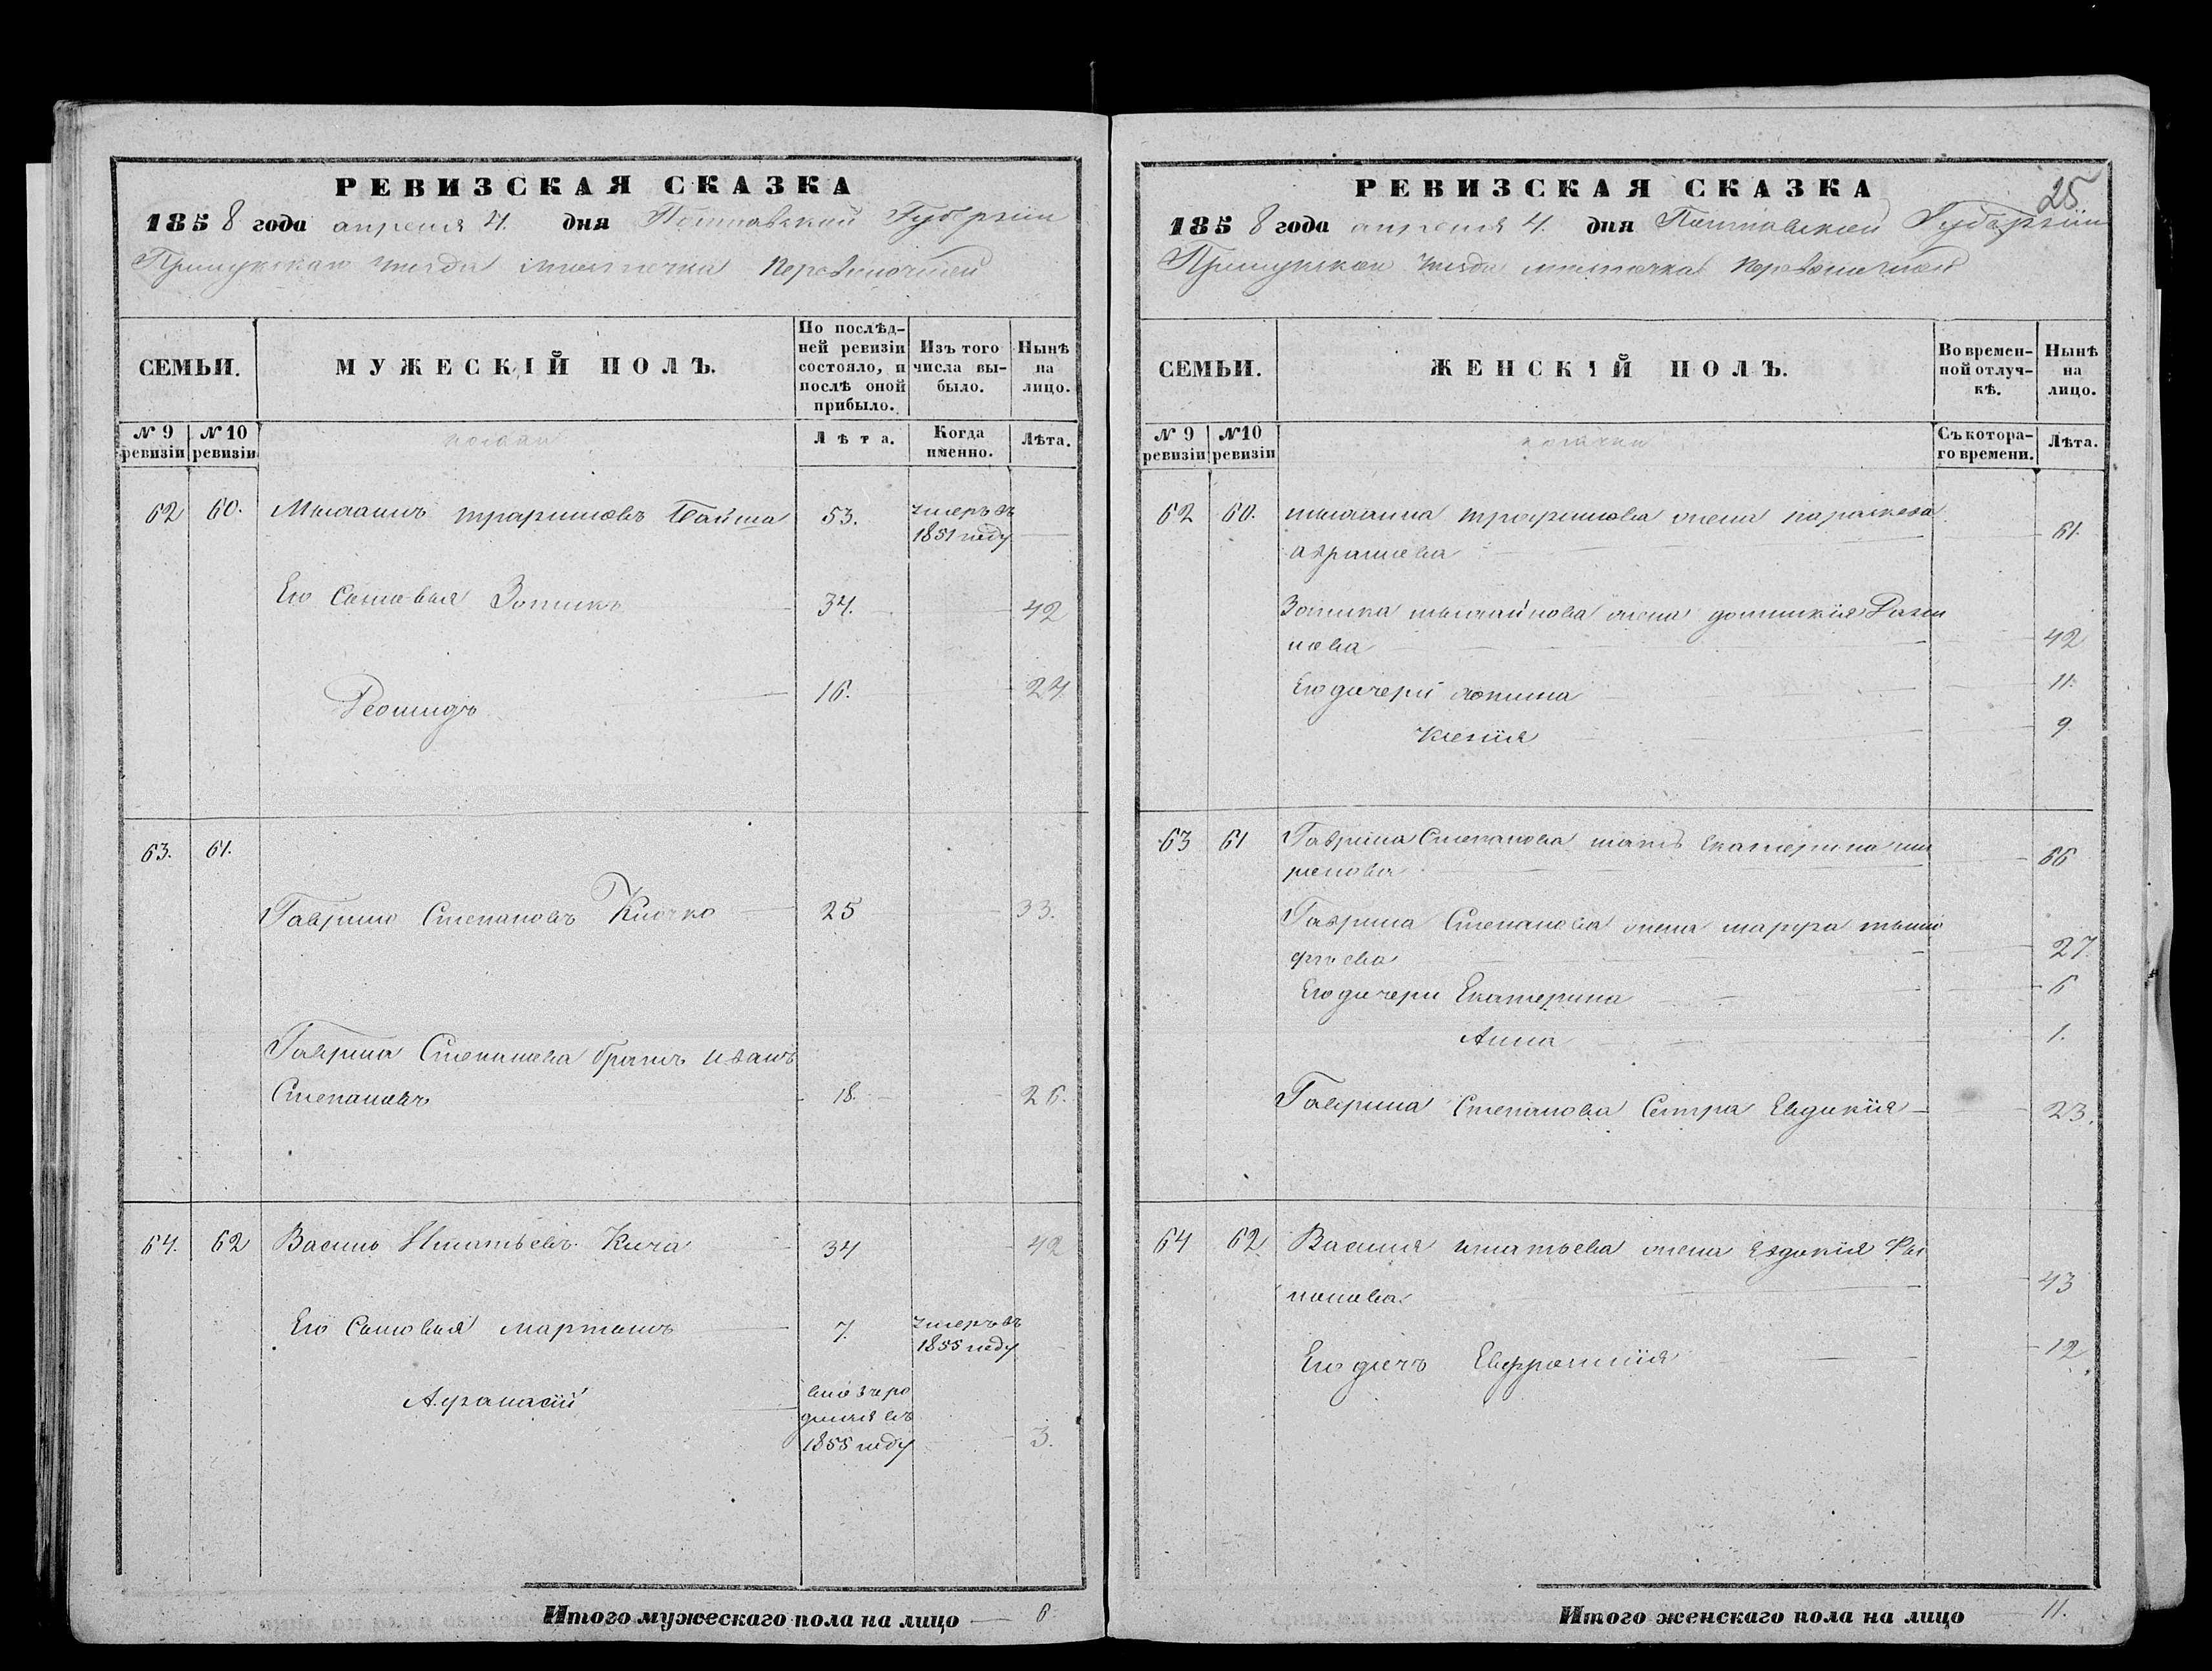 РЕВИЗСКАЯ СКАЗКА
1858 года апреля 4. дня Полтавской Губернiи
Прилукскаго уезда местечка Переволочной
СЕМЬИ.
МУЖЕСКIЙ ПОЛЪ.
По послѣд-
ней ревизiи
состояло, и
послѣ оной
прибыло.
Изъ того
числа вы-
было.
Нынѣ
на
лицо.
№ 9
ревизiи
№ 10
ревизiи
козаки
Лѣта.
Когда
именно.
Лѣта.
62 60. 53. умеръ въ
1851 году
Его Сыновья Зотикъ 34. 42
Леонидъ 16. 24.
63. 61.
Гаврило Степановъ Клочко 25 33.
Гаврила Степанова братъ Иванъ
Степановъ 18. 26.
64. 62 Василь Игнатьевъ Кича 34 42
Его Сыновья Мартынъ 7. умеръ въ
1855 году
Афанасiй вновь ро
дился въ
1855 году 3.
Итого мужескаго пола на лицо 6.
25
РЕВИЗСКАЯ СКАЗКА
1858 года апреля 4. дня Полтавской Губернiи
Прилукскаго уезда местечка Переволочной
СЕМЬИ.
ЖЕНСКIЙ ПОЛЪ.
Во времен-
ной отлуч-
кѣ.
Нынѣ
на
лицо.
№ 9
ревизiи
№10
ревизiи
козачки
Съ котора-
го времени.
Лѣта.
62 60. трофимова жена параскева
аврамова 61.
Зотика жена домникiя
нова 42
Его дочери 11.
Ксенiя 9
63 61 Гаврила Степанова мать Екатерина
66
Гаврила Степанова жена марфа тимо
фѣева 27.
Его дочери Екатерина 6
Анна 1.
Гаврила Степанова Сестра Евдокiя 23.
64 62. Василя игнатьева жена Евдокiя Фи
липова 43
Его дочь Евфросинiя 12
Итого женскаго пола на лицо 11.